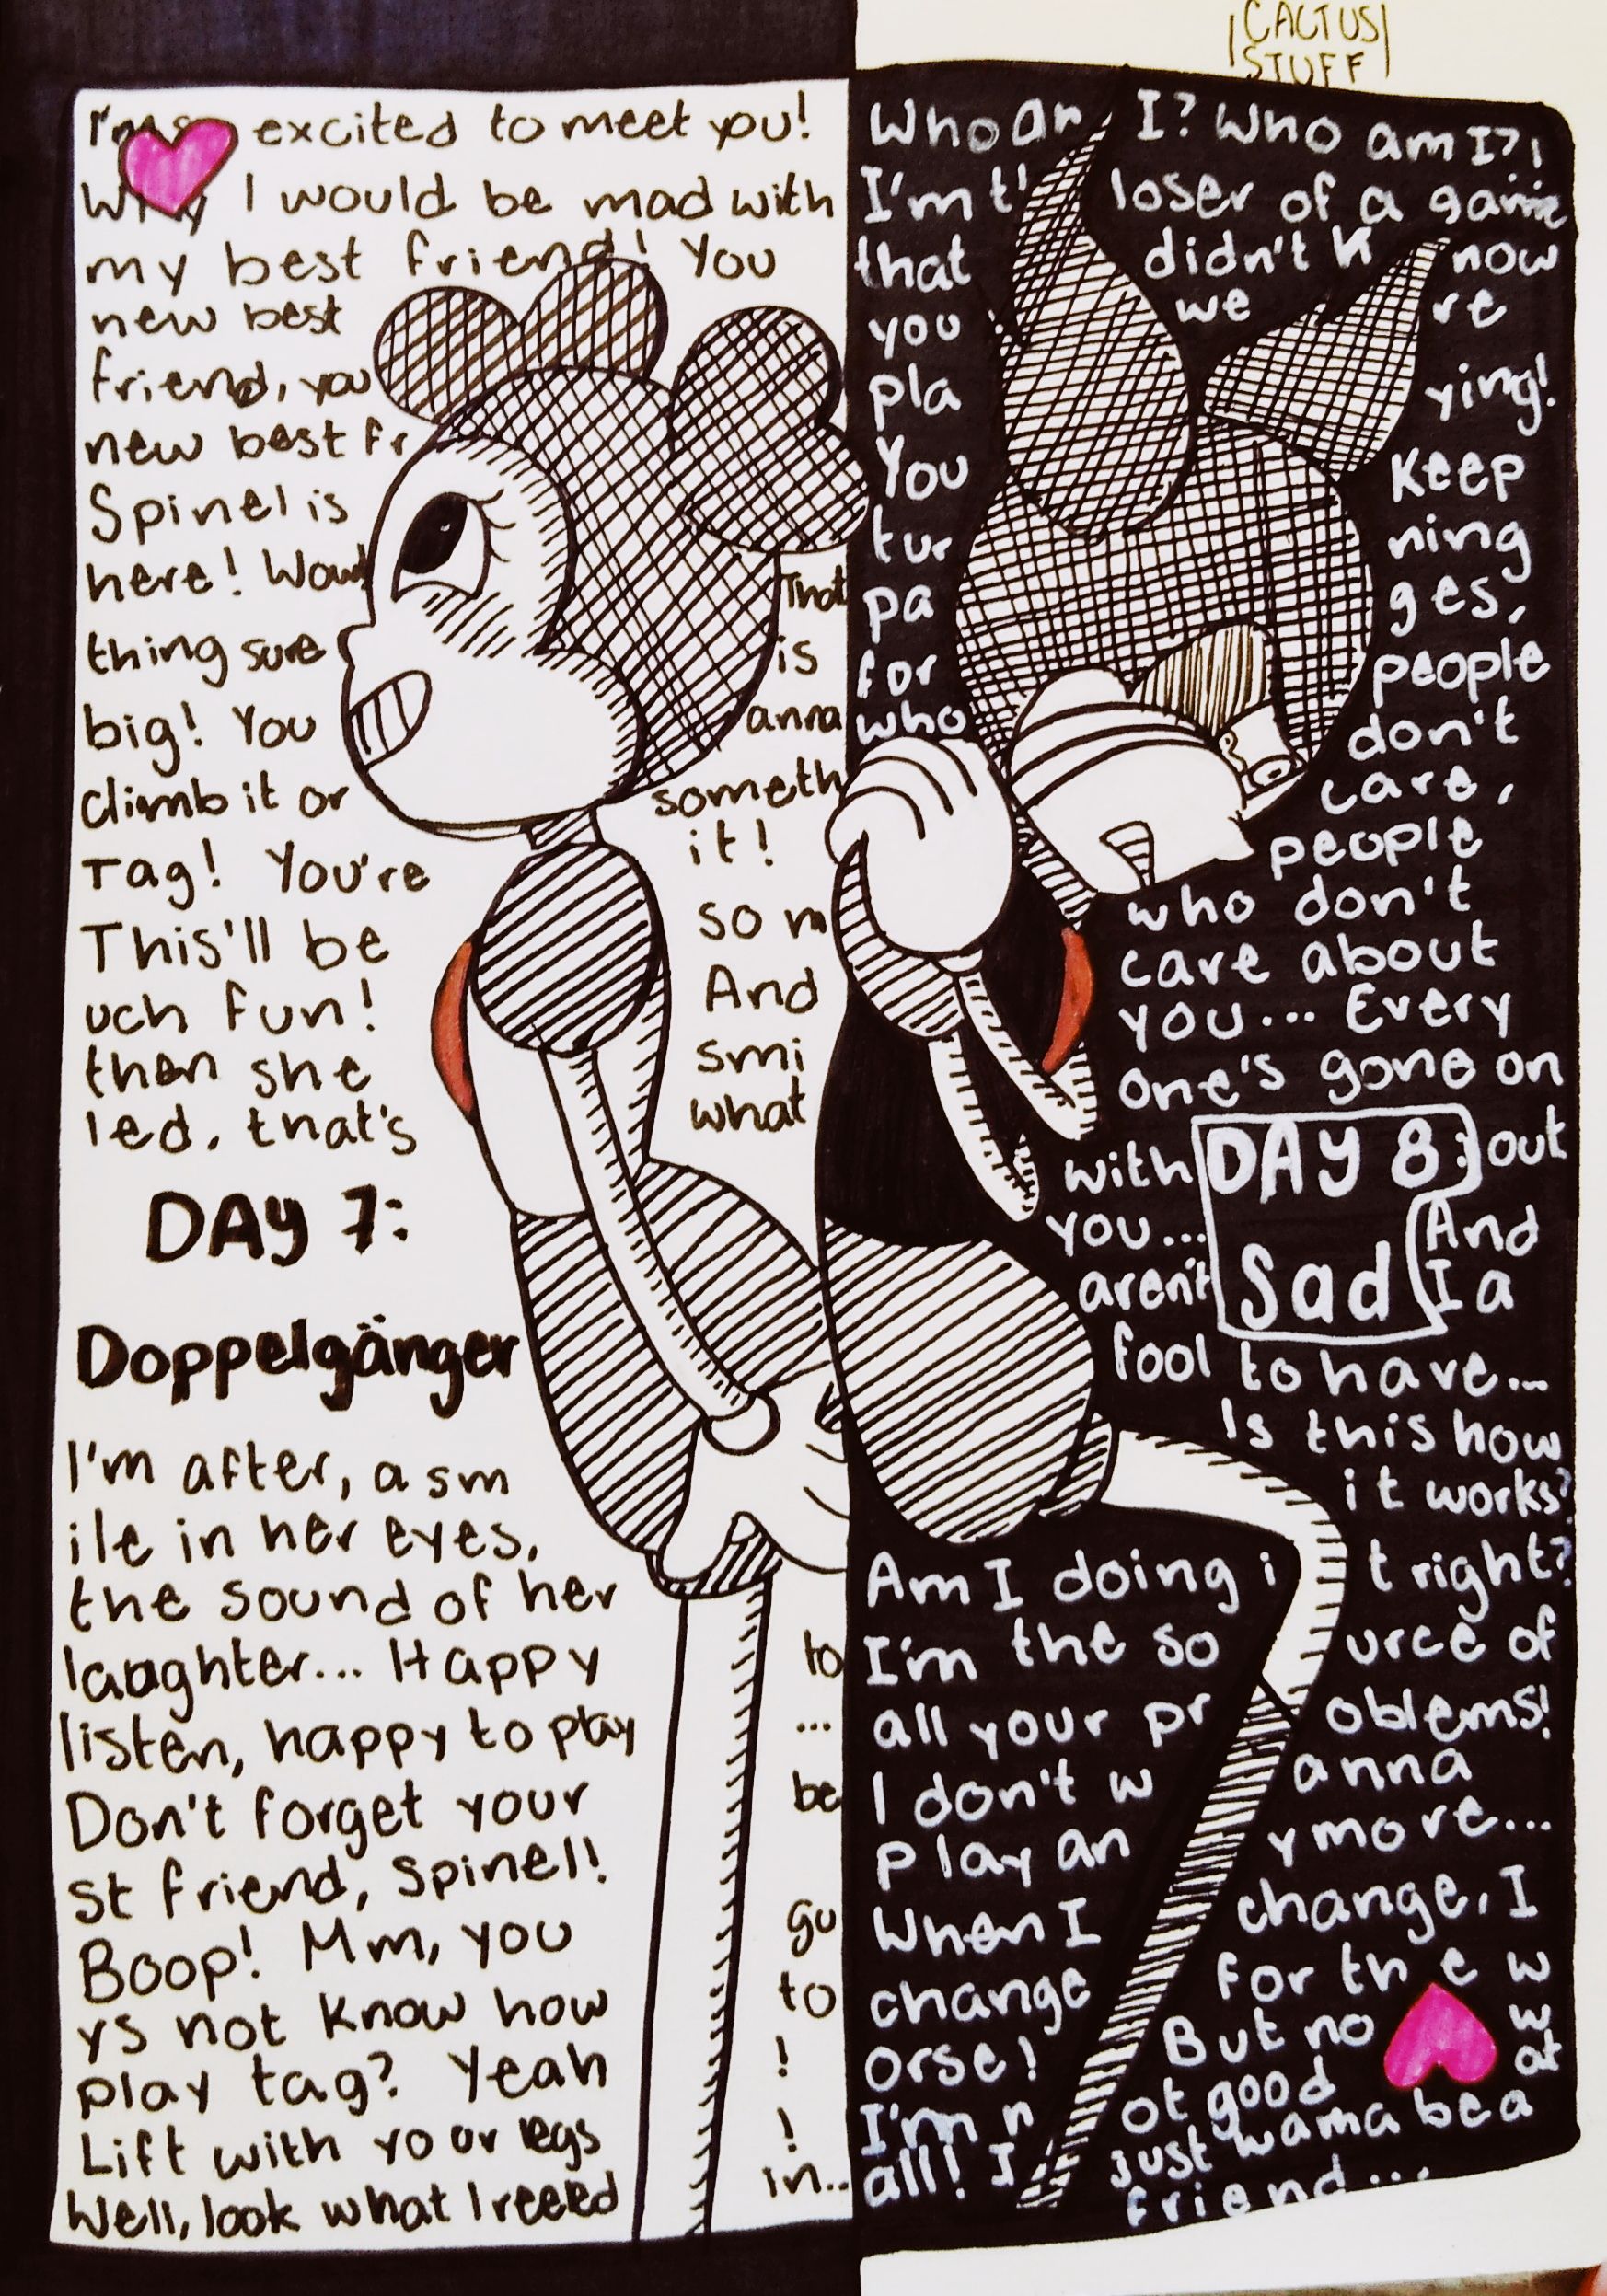 CACTUS
STUFF
excited to meet you!
Why I would be mad with
my best friend! You
new best
friend, you
new best fr
Spinel is
here! Woah That
thing sure is
big! You anna
climb it or someth
Tag! You're it!
This'll be so m
uch fun! And
then she smi
led. that's what
DAY 7:
Doppelgänger
I'm after, a sm
ile in her eyes,
the sound of her
laughter... Happy to
listen, happy to play ...
Don't forget your be
st friend, Spinel!
Boop! Mm, you gu
ys not know how to
play tag? Yeah !
Lift with your legs !
Well, look what I reeed in..
Who am I? Who am I?!
I'm t' loser of a game
that didn't know
you we re
pla ying!
You Keep
tur ning
pa ges,
for people
who don't
care,
people
who don't
care about
you... Every
one's gone on
with out
you... And
aren't I a
DAY 8:
Sad
fool to have...
Is this how
it works?
Am I doing i t right?
I'm the so urce of
all your pr oblems!
I don't w anna
play an ymore...
When I change, I
change for the w
orse! But no w
I'm n ot good at
all! I just wanna be a
friend...